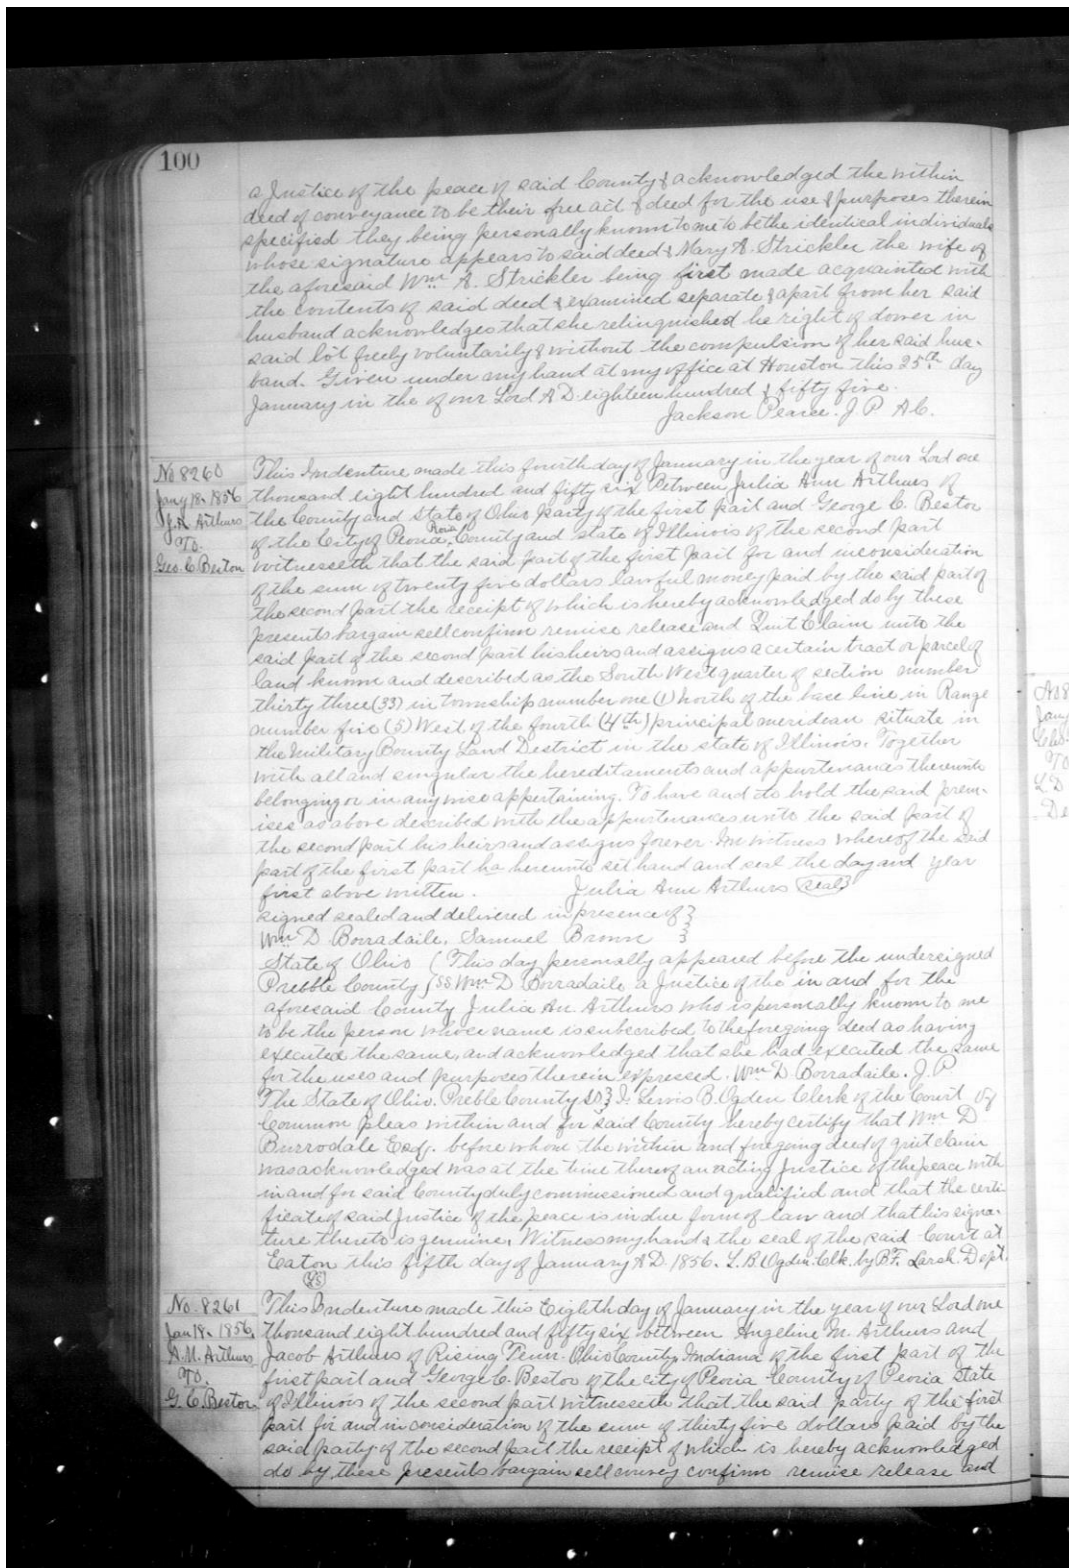 100
a Justice of the peace of said County & acknowledged the within
deed of conveyance to be their free act & deed for the use & purposes therein
specified they being personally known to me to be the identical individuals
whose signature appears to said deed & Mary A. Strickler the wife of
the aforesaid Wm. A. Strickler being first made acquainted with
the contents of said deed & examined separate & apart from her said
husband acknowledges that she relinquished he right of dower in
said lot freely voluntarily & without the compulsion of her said hus-
band. Given under my hand at my office at Houston this 25th day
January in the of our Lord A D. eighteen hundred & fifty five.
Jackson Pearce. J. P. A.C.
No 8260
Jany 18. 1856
J. A. Arthurs
To
Geo. C. Bestor
This Indenture made this fourth day of January in the year of our Lord one
thousand eight hundred and fifty six Between Julia Ann Arthurs of
the County and State of Ohio party of the first part and George C. Bestor
of the City of Peoria, Peoria County and State of Illinois of the second part
witnesseth that the said part of the first part for and inconsideration
of the sum of twenty five dollars lawful money paid by the said part of
the second part the receipt of which is hereby acknowledged do by these
presents bargain sell confirm remise release and Quit Claim unto the
said part of the second part his heirs and assigns a certain tract or parcel of
land known and described as the South West quarter of section number
thirty three (33) in township number one (1) north of the base line in Range
number five (5) West of the fourth (4th) principal meridean situate in
the Military Bounty Land District in the state of Illinois. Together
with all and singular the hereditaments and appurtenances thereunto
belonging or in any wise appertaining. To have and to hold the said prem-
ises as above described with the appurtenances unto the said part of
the second part his heirs and assigns forever. In witness whereof the said
part of the first part ha hereunto set hand and seal the day and year
first above written. Julia Ann Arthurs (seal)
signed sealed and delivered in presence of }
Wm D. Borradaile. Samuel Brown }
State of Ohio ( This day personally appeared before the undersigned
Prebble County } SS Wm. D Borradaile a Justice of the in and for the
aforesaid County Julia An Arthurs who is personally known to me
to be the person whose name is subscribed to the foregoing deed as having
executed the same, and acknowledged that she had executed the same
for the uses and purposes therein expressed. Wm D Borradaile. J P
The State of Ohio. Preble County SS } I. Lewis B. Ogden Clerk of the Court of
Common pleas within and for said County hereby certify that Wm D.
Burrodale Esq. before whom the within and foregoing deed of quit claim
was acknowledged was at the time thereof an acting Justice of the peace with
in and for said County duly commissioned and qualified and that the certi
ficate of said Justice of the peace is in due form of law and that his signa-
ture thereto is genuine. Witness my hand & the seal of the said Court at
Eaton this fifth day of January A D. 1856. L. B. Ogden. Clk. by B.F. Larsh. Dept.
No. 8261
Jan 18. 1856
A. M. Arthurs
To
G. C. Bestor
This Indenture made this Eighth day of January in the year of our Lord one
thousand eight hundred and fifty six between Angeline M. Arthurs and
Jacob Arthurs of Rising Ohio County Indiana of the first part of the
first part and George C. Bestor of the city of Peoria County of Peoria State
of Illinois of the second part witnesseth that the said party of the first
part for and in consideration of the sum of thirty five dollars paid by the
said party of the second part the receipt of which is hereby acknowledged
do by these presents bargain sell convey confirm remise release and
Jany
To
L. D
De